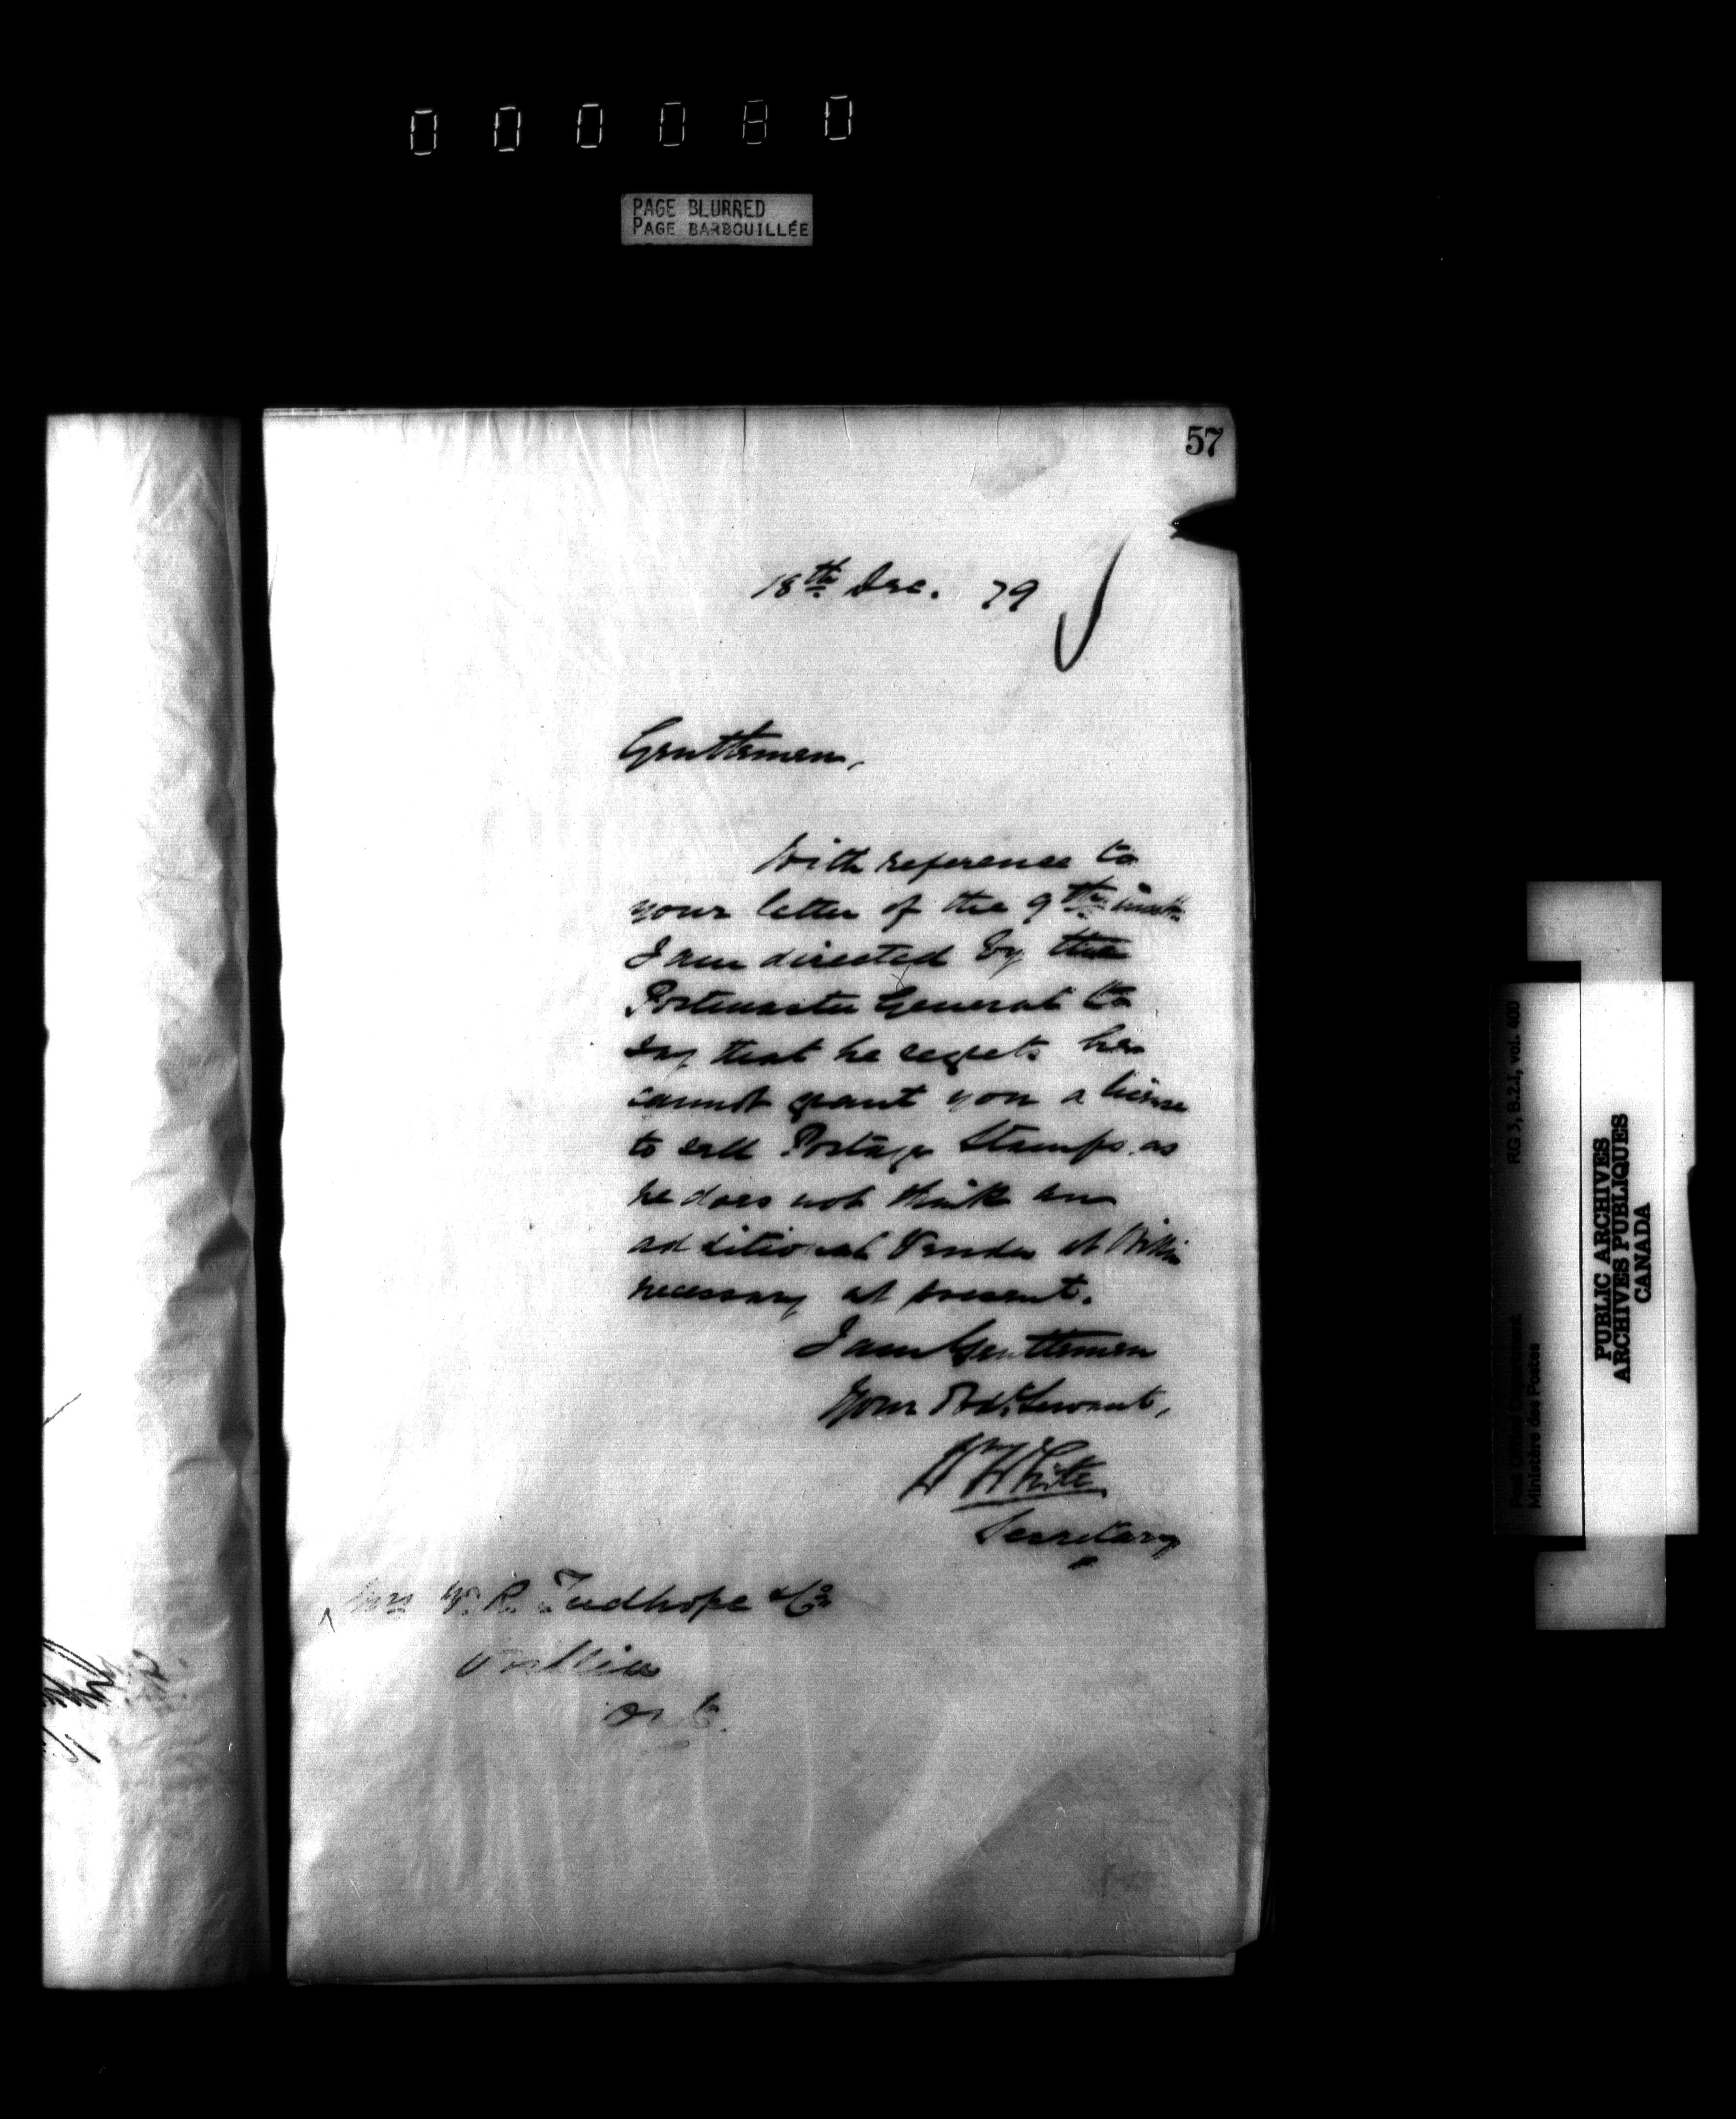 000080
PAGE BLURRED
PAGE BARBOUILLÉE
57
18th Dec. 79
Gentlemen,
With reference to
your letter of the 9th inst.
I am directed by the
Postmaster General to
say that he regrets he
cannot grant you a license
to sell Postage Stamps as
he does not think an
additional Vendor at Orillia
necessary at present.
I am Gentlemen
Your Obdt. Servant,
Wm White
Secretary
W. R. Tudhope & Co
Orillia
Ont.
RG 3, B.2.1, vol. 400
Post Office Department
Ministère des Postes
PUBLIC ARCHIVES
ARCHIVES PUBLIQUES
CANADA